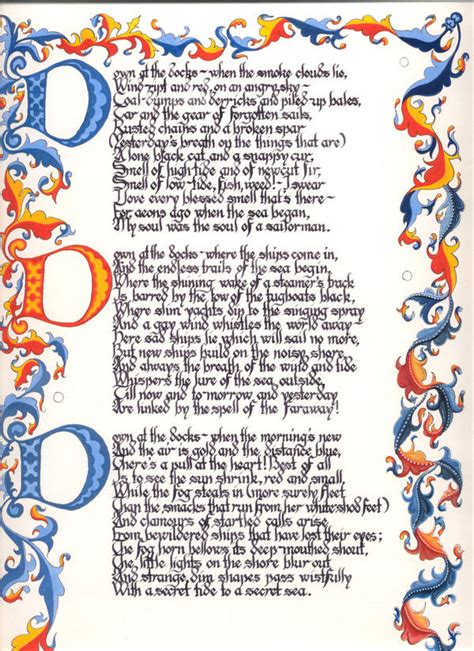 Down at the docks ~ when the smoke clouds lie,
Wind-ript and red, on an angry sky ~
Coal-dumps and derricks and piled up bales,
Tar and the gear of forgotten sails,
Rusted chains and a broken spar
(Yesterday's breath on the things that are)
A lone black cat and a snappy cur,
Smell of high tide and of newcut fir,
Smell of low-tide, fish, weed! ~ I swear
I love every blessed smell that's there ~
For aeons ago when the sea began,
My soul was the soul of a sailorman.
Down at the docks ~ where the ships come in,
And the endless trails of the sea begin,
Where the shining wake of a steamer's track
Is barred by the tow of the tugboats black,
Where slim yachts dip to the singing spray
And a gay wind whistles the world away ~
Here sad ships lie which will sail no more,
But new ships build on the noisy shore,
And always the breath of the wind and tide
Whispers the lure of the sea outside,
Till now and to morrow and yesterday
Are linked by the spell of the Faraway!
Down at the docks ~ when the morning's new
And the air is gold and the distance blue,
There's a pull at the heart! Best of all
Is to see the sun shrink, red and small,
While the fog steals in (more surely fleet
Than the smacks that run from her white-shod feet)
And clamours of startled calls arise
From bewildered ships that have lost their eyes;
The fog horn bellows its deep mouthed shout,
The little lights on the shore blur out
And strange, dim shapes pass wistfully
With a secret tide to a secret sea.